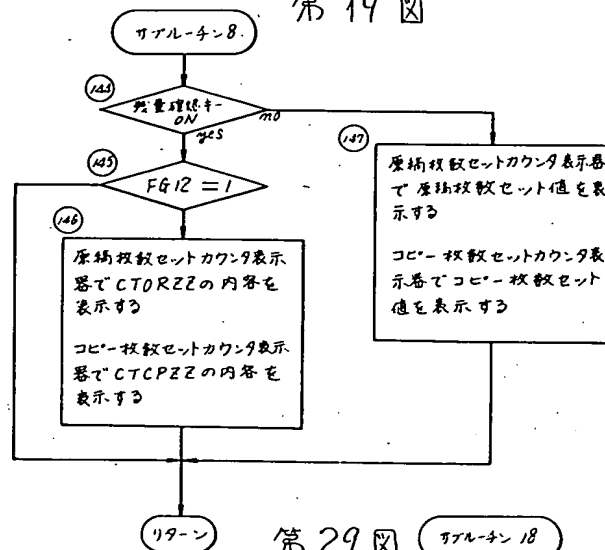 第19図
サブルーチン8
残量確認キー
ON
yes
no
145
FG12=1
146
原稿枚数セットカウンタ表示
器でCTORZZの内容を
表示する
コピー枚数セットカウンタ表示
器でCTCPZZの内容を
表示する
147
原稿枚数セットカウンタ表示器
で原稿枚数セット値を表
示する
コピー枚数セットカウンタ表
示器でコピー枚数セット
値を表示する
リターン
第29図
サブルーチン18